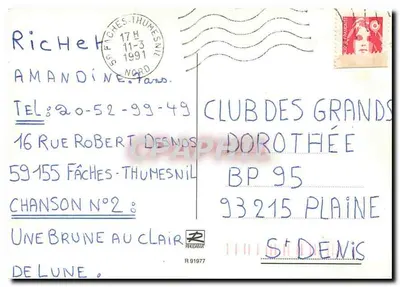 RICHET
AMANDINE. 7ans.
TEL: 20-52-99-49
16 RUE ROBERT DESNOS
59155 FÂCHES-THUMESNIL
CHANSON N°2:
UNE BRUNE AU CLAIR
DE LUNE.
59 FACHES-THUMESNIL
17H
11-3
1991
NORD
CLUB DES GRANDS
DOROTHÉE
BP 95
93215 PLAINE
St DENIS
R 91977